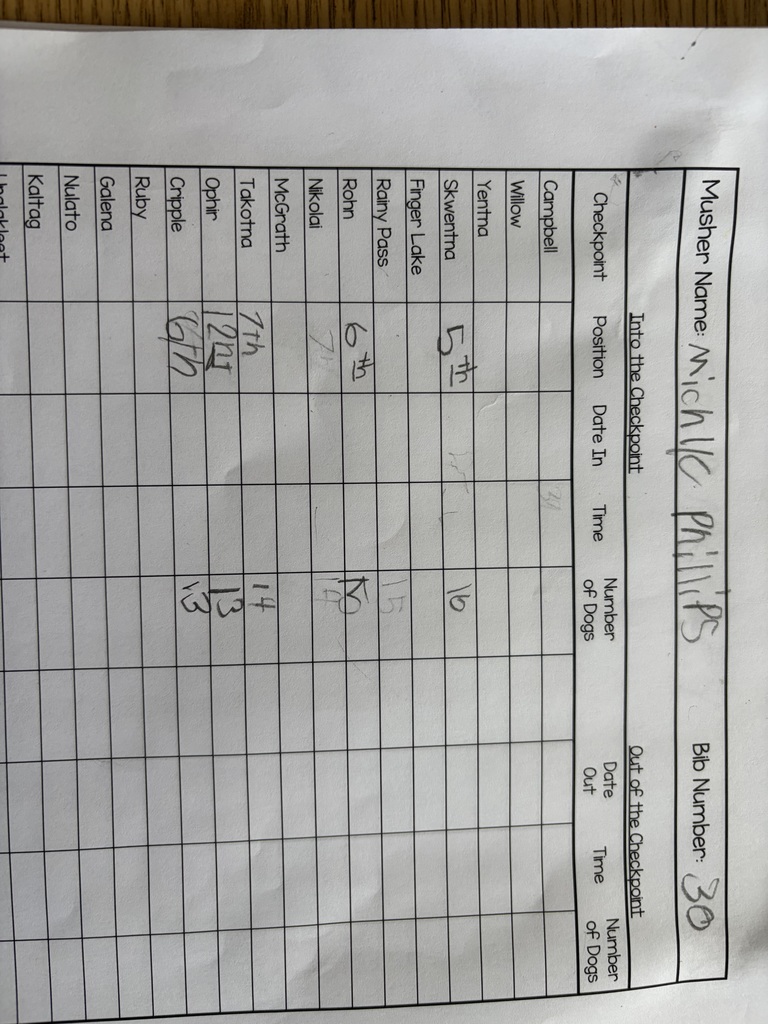 Musher Name: Michlle Phillips Bib Number: 30
Into the Checkpoint Out of the Checkpoint
Checkpoint Position Date In Time Number of Dogs Date Out Time Number of Dogs
Campbell
Willow
Yentna
Skwentna 5th 16
Finger Lake
Rainy Pass 15
Rohn 6th 15
Nikolai 7th 14
McGrath
Takotna 7th 14
Ophir 12th 13
Cripple 6th 13
Ruby
Galena
Nulato
Kaltag
Unalakleet